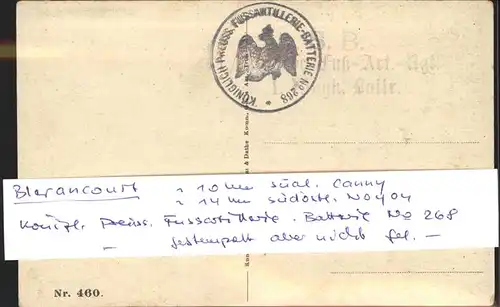 KÖNIGLICH PREUSS. FUSSARTILLERIE-BATTERIE No 268
S. B.
Fuß-Art.
Blerancourt ~ 10 km südl. Canny
~ 14 km südöstl. Noyon
Königl. Preuss. Fussartillerie. Batterie No 268
– gestempelt aber nicht gel. –
Nr. 460.